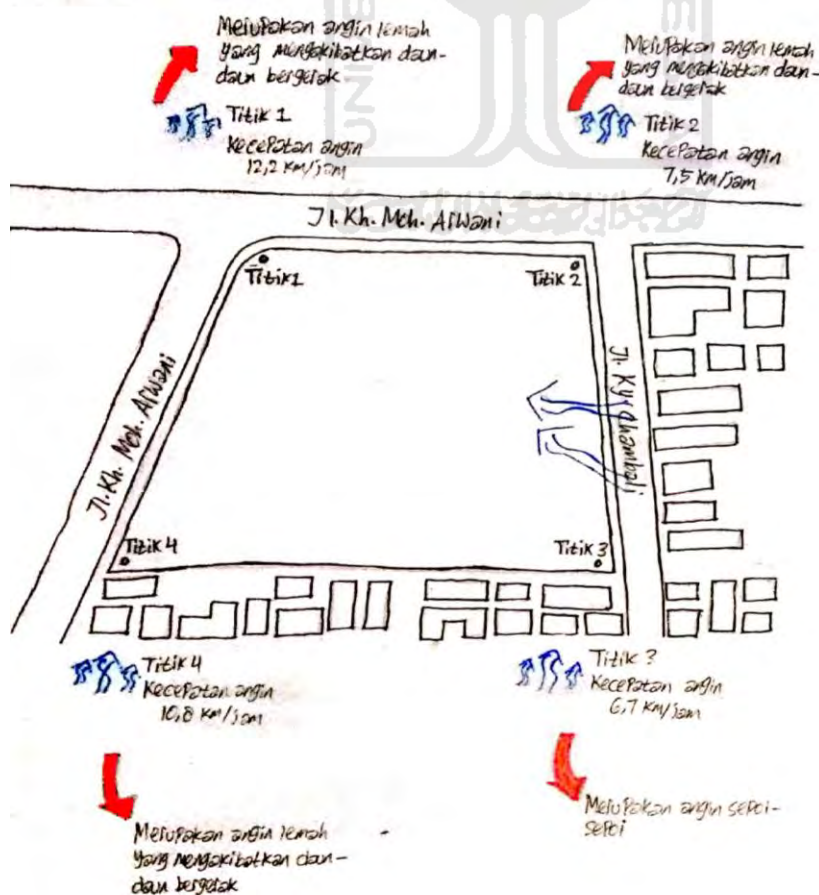 Merupakan angin lemah
yang mengakibatkan daun-
daun bergerak
Titik 1
Kecepatan angin
12,2 Km/jam
Merupakan angin lemah
yang mengakibatkan daun-
daun bergerak
Titik 2
Kecepatan angin
7,5 Km/jam
Jl. Kh. Mch. Arwani
Titik 1
Titik 2
Jl. Kh. Mch. Arwani
Jl. Ky. Chambali
Titik 4
Titik 3
Titik 4
Kecepatan angin
10,8 Km/jam
Titik 3
Kecepatan angin
6,7 Km/jam
Merupakan angin lemah
yang mengakibatkan daun-
daun bergerak
Merupakan angin sepoi-
sepoi